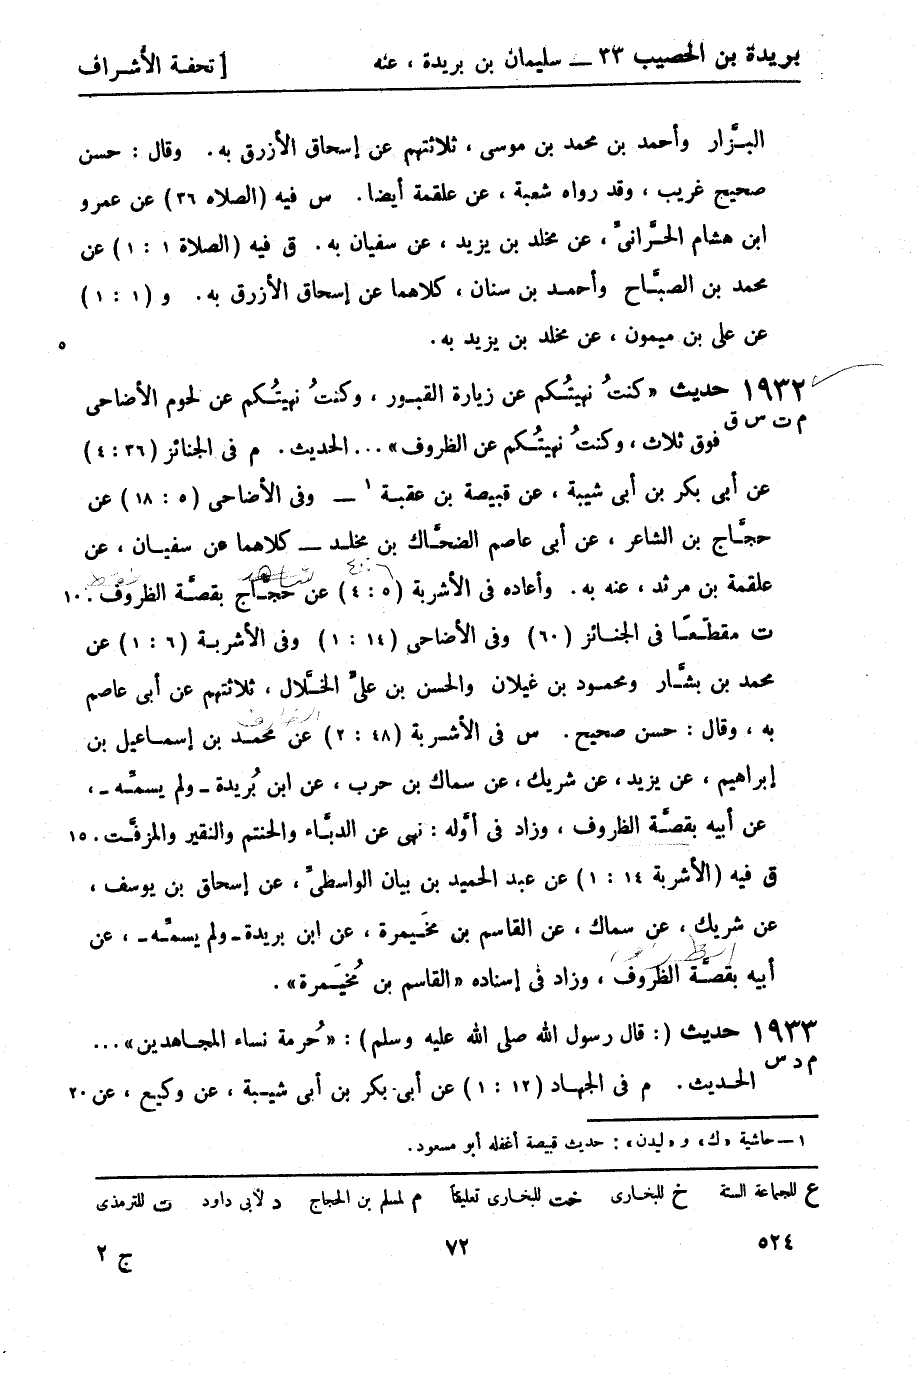 بريدة بن الحصيب ٣٣ ــ سليمان بن بريدة ، عنه [ تحفة الأشراف
البزَّار وأحمد بن محمد بن موسى ، ثلاثتهم عن إسحاق الأزرق به. وقال : حسن
صحيح غريب ، وقد رواه شعبة ، عن علقمة أيضا. س فيه (الصلاه ٣٦) عن عمرو
ابن هشام الحَرَّانىّ ، عن مخلد بن يزيد ، عن سفيان به. ق فيه (الصلاة ١ : ١) عن
محمد بن الصبَّاح وأحمد بن سنان ، كلاهما عن إسحاق الأزرق به. و (١ : ١)
عن على بن ميمون ، عن مخلد بن يزيد به. ٥
١٩٣٢ حديث «كنتُ نهيتُكم عن زيارة القبور ، وكنتُ نهيتُكم عن لحوم الأضاحى
م ت س ق فوق ثلاث ، وكنتُ نهيتُكم عن الظروف» ... الحديث. م فى الجنائز (٣٦ : ٤)
عن أبى بكر بن أبى شيبة ، عن قبيصة بن عقبة ١ ــ وفى الأضاحى (٥ : ١٨) عن
حجَّاج بن الشاعر ، عن أبى عاصم الضحَّاك بن مخلد ــ كلاهما عن سفيان ، عن
علقمة بن مرثد ، عنه به. وأعاده فى الأشربة (٥ : ٤) عن حجاج بقصَّة الظروف. ١٠
ت مقطّعًا فى الجنائز (٦٠) وفى الأضاحى (١٤ : ١) وفى الأشربة (٦ : ١) عن
محمد بن بشَّار ومحمود بن غيلان والحسن بن علىّ الخلَّال ، ثلاثتهم عن أبى عاصم
به ، وقال : حسن صحيح. س فى الأشربة (٤٨ : ٢) عن محمد بن إسماعيل بن
إبراهيم ، عن يزيد ، عن شريك ، عن سماك بن حرب ، عن ابن بُريدة ـ ولم يسمّه ـ ،
عن أبيه بقصَّة الظروف ، وزاد فى أوَّله : نهى عن الدبَّاء والحنتم والنقير والمزفَّت. ١٥
ق فيه (الأشربة ١٤ : ١) عن عبد الحميد بن بيان الواسطىّ ، عن إسحاق بن يوسف ،
عن شريك ، عن سماك ، عن القاسم بن مخَيمرة ، عن ابن بريدة ـ ولم يسمّه ـ ، عن
أبيه بقصَّة الظروف ، وزاد فى إسناده «القاسم بن مُخَيمَرة» .
١٩٣٣ حديث (: قال رسول الله صلى الله عليه وسلم) : «حُرمة نساء المجاهدين» ...
م د س الحديث. م فى الجهاد (١٢ : ١) عن أبى بكر بن أبى شيبة ، عن وكيع ، عن ٢٠
١ ــ حاشية «ك» و «ليدن» : حديث قبيصة أغفله أبو مسعود.
ع للجماعة الستة خ للبخارى خت للبخارى تعليقاً م لمسلم بن الحجاج د لأبى داود ت للترمذى
٥٢٤ ٧٢ ج ٢